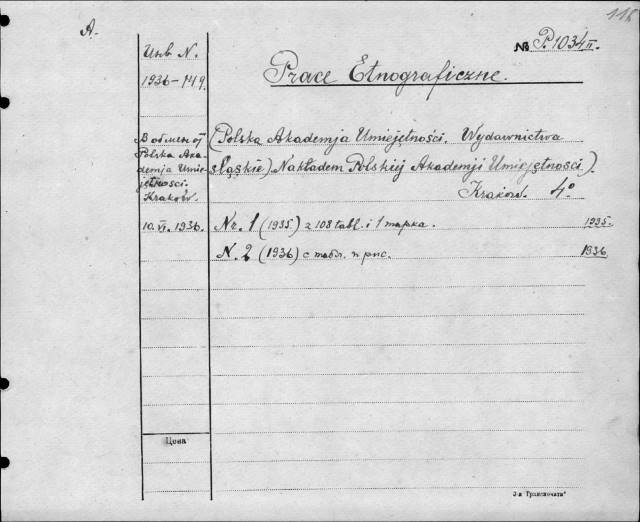 115
A.
№ P. 1034 II.
Инв N.
1936-149.
Prace Etnograficzne.
В обмен от
Polska Aka-
demja Umie-
jętności.
Kraków.
(Polska Akademja Umiejętności. Wydawnictwa
Śląskie) Nakładem Polskiej Akademji Umiejętności.).
Kraków. 4°
10. VI. 1936.
Nr. 1 (1935) z 108 tabl. i 1 mapka. 1935.
N. 2 (1936) с табл. и рис. 1936
Цена
3-я Транспечать"